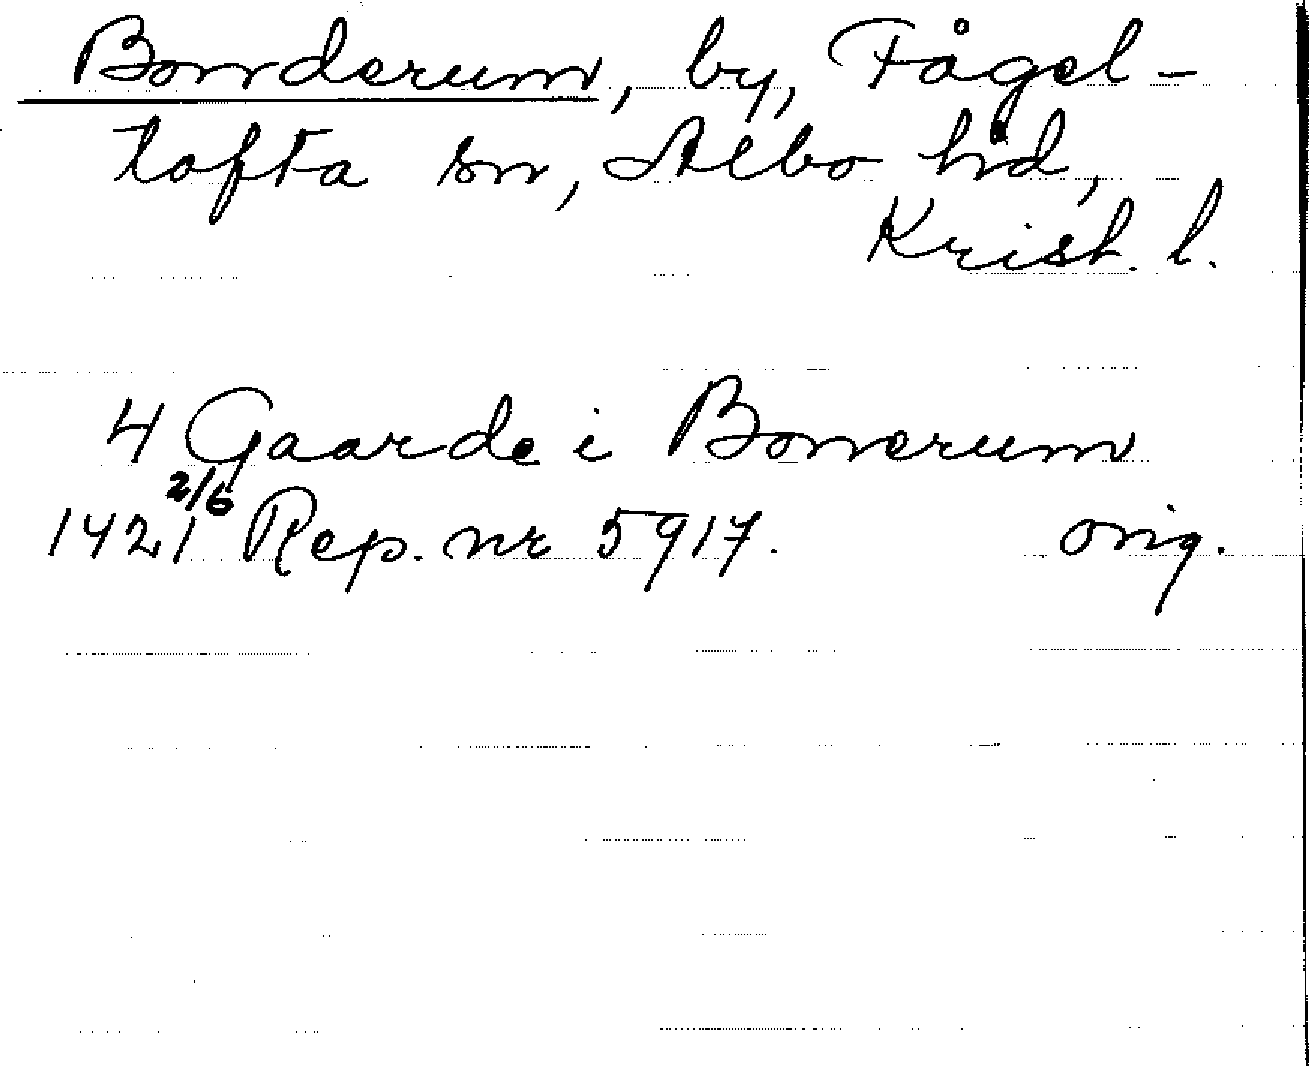 Bonderum, by, Fågel-
tofta sn, Albo hd,
Krist. l.
4 Gaarde i Bonerum
1421 2/6 Rep. nr 5917. orig.